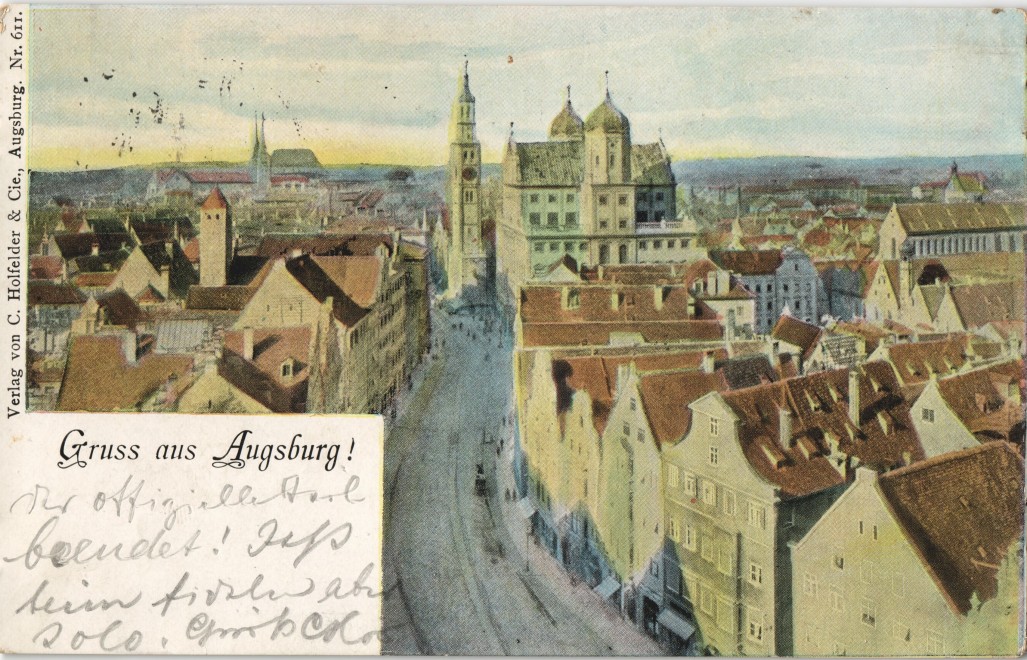 Verlag von C. Holfelder & Cie., Augsburg. Nr. 611.
Gruss aus Augsburg!
Der offizielle Teil
beendet! Jetzt
beim fidelen aber
solo.